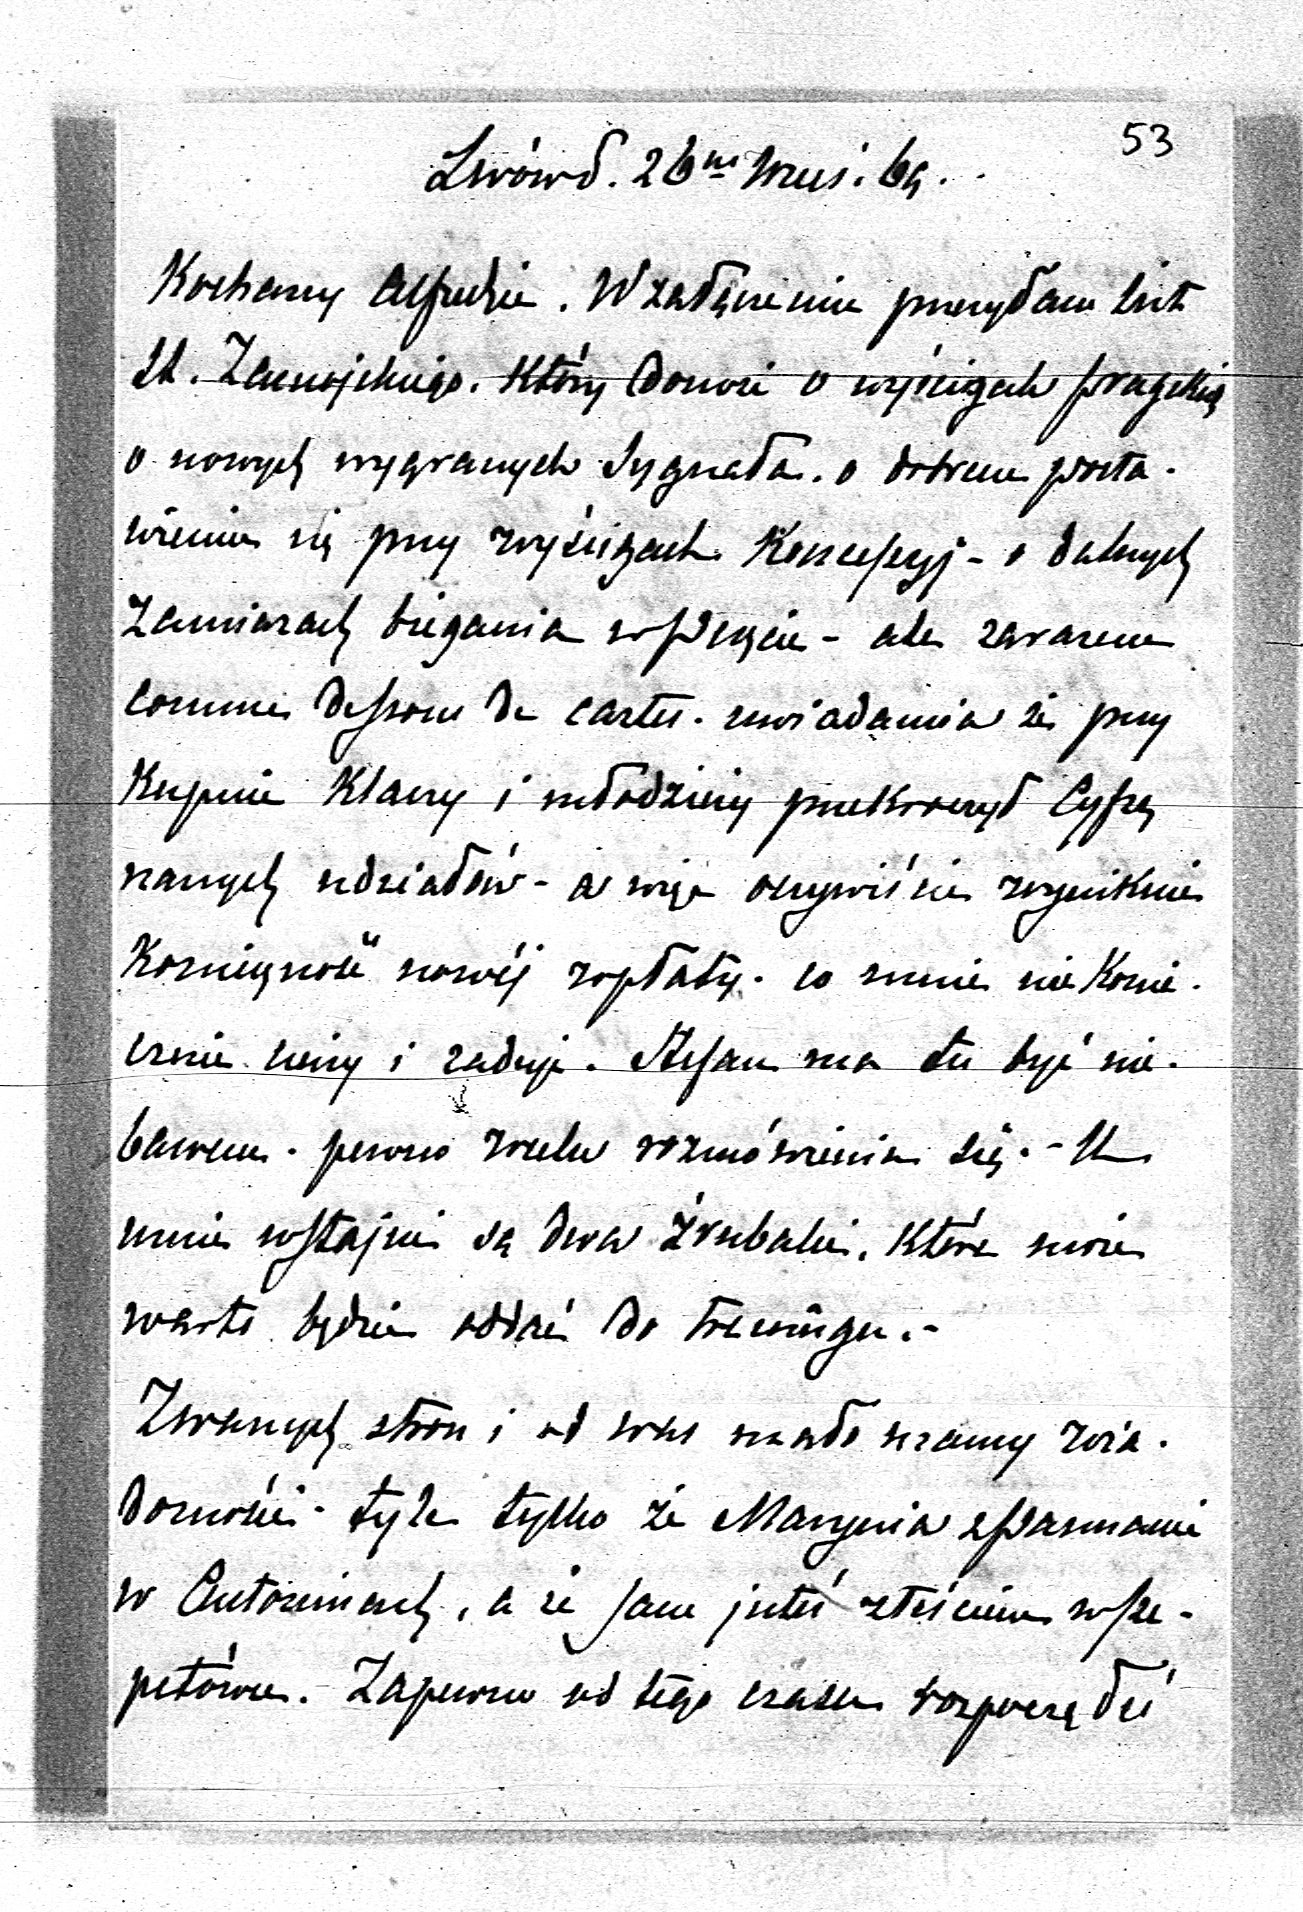 53
Lwów d. 26go Wrześ. 69.
Kochany Alfredzie. W załączeniu przesyłam list
St. Zamojskiego. Który donosi o wyścigach pragskich
o nowych wygranych Sygnała. o dobrem posta-
wieniu się przy wyścigach Koncepcyj - o dalszych
zamiarach biegania w Peszcie - ale zarazem
comme dessous de cartes. uwiadamia że przy
Kupnie Klaczy i młodzieży przekroczył Cyfrę
naszych udziałów - a więc oczywiście wyniknie
Konieczność nowéj wpłaty. co mnie nie Konie-
cznie cieszy i raduje. Stefan ma tu być nie-
bawem. pewno zechce rozmówienia się. - U
mnie w stajni są dwa źrebaki, które może
warto będzie oddać do treningu. -
Z waszych stron i od was mało mamy wia-
domości - tyle tylko że Marynia z Pannami
w Antoninach, a że sam jesteś z teściem w Sze-
petówce. Zapewne od tego czasu rozpocząłeś